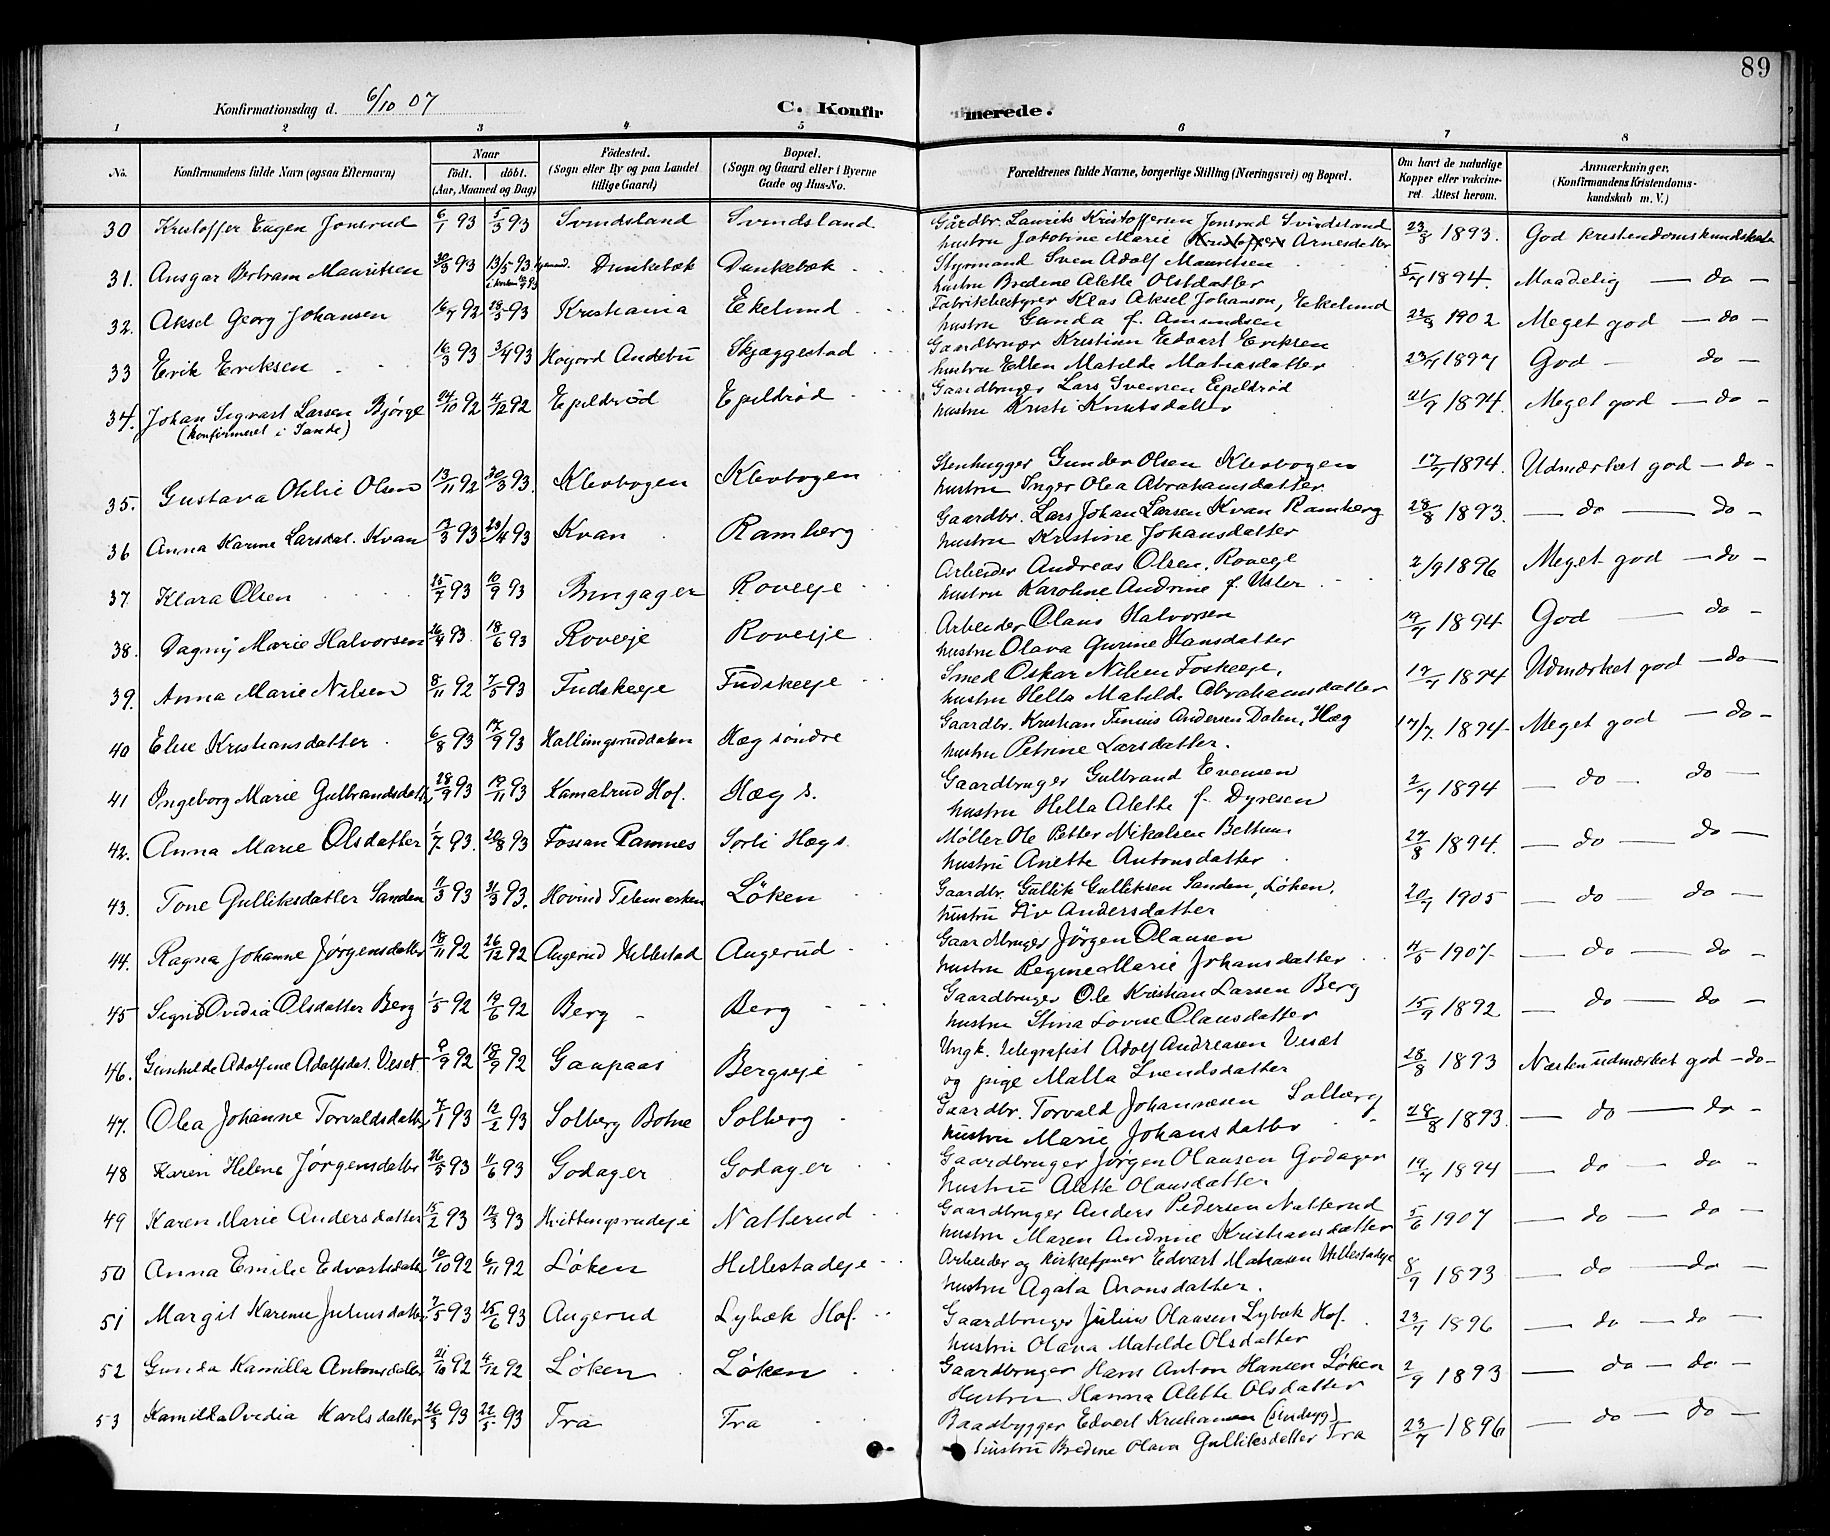 89
Konfirmationsdag d. 6/10 07
C. Konfirmerede.
1 2 3 4 5 6 7 8
No. Konfirmandens fulde Navn (ogsaa Efternavn) Naar født. døbt. (Aar, Maaned og Dag) Fødested. (Sogn eller By og paa Landet tillige Gaard) Bopæl. (Sogn og Gaard eller i Byerne Gade og Hus-No. Forældrenes fulde Navne, borgerlige Stilling (Næringsvei) og Bopæl. Om havt de naturlige Kopper eller vakcineret. Attest herom. Anmærkninger. (Konfirmandens Kristendomskundskab m. V.)
30 Kristoffer Eugen Jonsrud 6/1 93 5/3 93 Svindsland Svindsland Gårdbr. Laurits Kristoffersen Jonsrud Svindsland
hustru Jakobine Marie Arnesdatter 23/8 1893. God kristendomskundskab
31. Ansgar Bertram Mauritsen 30/3 93 13/5 93 Dunkebæk Dunkebæk Styrmand Sven Adolf Mauritsen
hustru Bredene Alette Olsdatter 5/7 1894. Maadelig — do —
32. Aksel Georg Johansen 16/7 92 28/3 93 Kristiania Ekelund Fabrikbestyrer Klas Aksel Johanson, Ekelund
hustru Gunda f. Amundsen 22/8 1902 Meget god — do —
33 Erik Eriksen 16/3 93 3/4 93 Høgord Andebu Skjæggestad Gaardbruger Kristian Edvart Eriksen
hustru Ellen Matilde Matiasdatter 23/7 1897 God — do —
34. Johan Sigvart Larsen Bjørge 24/10 92 4/12 92 Epildrød Epildrød Gaardbruger Lars Svensen Epildrød
(konfirmeret i Sande) hustru Kristi Knutsdatter 21/9 1894. Meget god — do —
35. Gustava Otilie Olsen 13/11 92 30/3 93. Klevbogen Klevbogen Stenhugger Gunder Olsen Klevbogen
hustru Inger Olea Abrahamsdatter. 17/7 1894. Udmærket god — do —
36 Anna Karine Larsdat. Kvan 13/3 93 23/4 93 Kvan Ramberg Gaardbr. Lars Johan Larsen Kvan Ramberg
hustru Kristine Johansdatter 28/8 1893. — do — do —
37. Klara Olsen 15/7 93 10/9 93 Bringager Roveeje Arbeider Andreas Olsen, Roveje
hustru Karoline Andrine f. 2/9 1896 Meget god — do —
38. Dagny Marie Halvorsen 26/4 93. 18/6 93 Roveeje Roveeje Arbeider Olaus Halvorsen
hustru Olava Gurine Hansdatter 19/7 1894 God — do —
39. Anna Marie Nilsen 8/11 92 7/5 93 Fudskeeje Fudskeeje Smed Oskar Nilsen Foskeeje,
hustru Hella Matilde Abrahamsdatter 17/7 1894 Udmærket god — do —
40 Elise Kristiansdatter 6/8 93 17/9 93 Hallingsruddalen Hæg søndre Gaardbr. Kristian Tinius Andersen Dalen, Hæg
hustru Petrine Larsdatter. 17/7. 1894 Meget god — do —
41 Ingeborg Marie Gulbrandsdatt. 28/9 93 19/11 93 Kamalrud Hof. Hæg s. Gaardbruger Gulbrand Evensen
hustru Hella Alette f. Dyresen 2/7 1894 — do — do —
42. Anna Marie Olsdatter 1/7. 93. 20/8 93 Fossan Ramnes Sørli Hæg s. Møller Ole Petter Nikolsen Bettum
hustru Anette Antonsdatter 27/8 1894. — do — do —
43. Tone Gulliksdatter Sanden 11/3 93 31/3 93. Hovind Telemarken Løken Gaardbr. Gullik Gulliksen Sanden, Løken.
hustru Liv Andersdatter 20/7 1905 — do — do —
44. Ragna Johanne Jørgensdatter 18/11 92 26/12 92 Augerud Hillestad Augerud Gaardbruger Jørgen Olausen
hustru Regine Marie Johansdatter 4/5 1907 — do — do
45 Sigrid Ovedia Olsdatter Berg 1/5 92 19/6 92 Berg Berg Gaardbruger Ole Kristian Larsen Berg
hustru Stina Lovise Olausdatter 15/9 1892 — do — do —
46. Gunhilde Adolfine Adolfsdat. Veset 9/9 92 18/9 92 Gaupaas Bergseje Ungk. telegrafist Adolf Andreasen Vesæt
og pige Malla Svendsdatter 28/8 1893 Næsten udmærket god — do —
47. Olea Johanne Torvaldsdatter 7/1 93 12/2 93 Solberg Botne Solberg Gaardbr. Torvald Johannesen Solberg
hustru Marie Johansdatter 28/8 1893. — do — do —
48 Karen Helene Jørgensdatter 26/5 93 11/6 93 Godager Godager Gaardbruger Jørgen Olausen Godager
hustru Alette Olausdatter 19/7 1894 — do — do —
49 Karen Marie Andersdatter 15/2 93 12/3 93 Hvittingsrudeje Natterud Gaardbruger Anders Pedersen Natterud
hustru Maren Andrine Kristiansdatter 5/6 1907 — do — do —
50 Anna Emilie Edvartsdatter 10/10 92 6/11 92 Løken Hillestadeje Arbeider og kirketjener Edvart Matiasen Hillestadeje
hustru Agata Aronsdatter. 8/9 1893 — do — do —
51 Margit Karense Juliusdatter 7/5 93 25/6 93 Augerud Lybæk Hof. Gaardbruger Julius Olausen Lybæk Hof.
hustru Olava Matilde Olsdatter 23/7 1896 — do — do —
52 Gunda Kamilla Antonsdatter 21/10 92 4/12 92 Løken Løken Gaardbruger Hans Anton Hansen Løken
Hustru Hanna Alette Olsdatter 2/9 1893 — do — do —
53 Kamilla Ovedia Karlsdatter 26/3 93 22/5 93 Fra Fra Baadbygger Edvart Kristiansen
hustru Bredine Olava Gulliksdatter Fra 23/7 1896 — do — do —